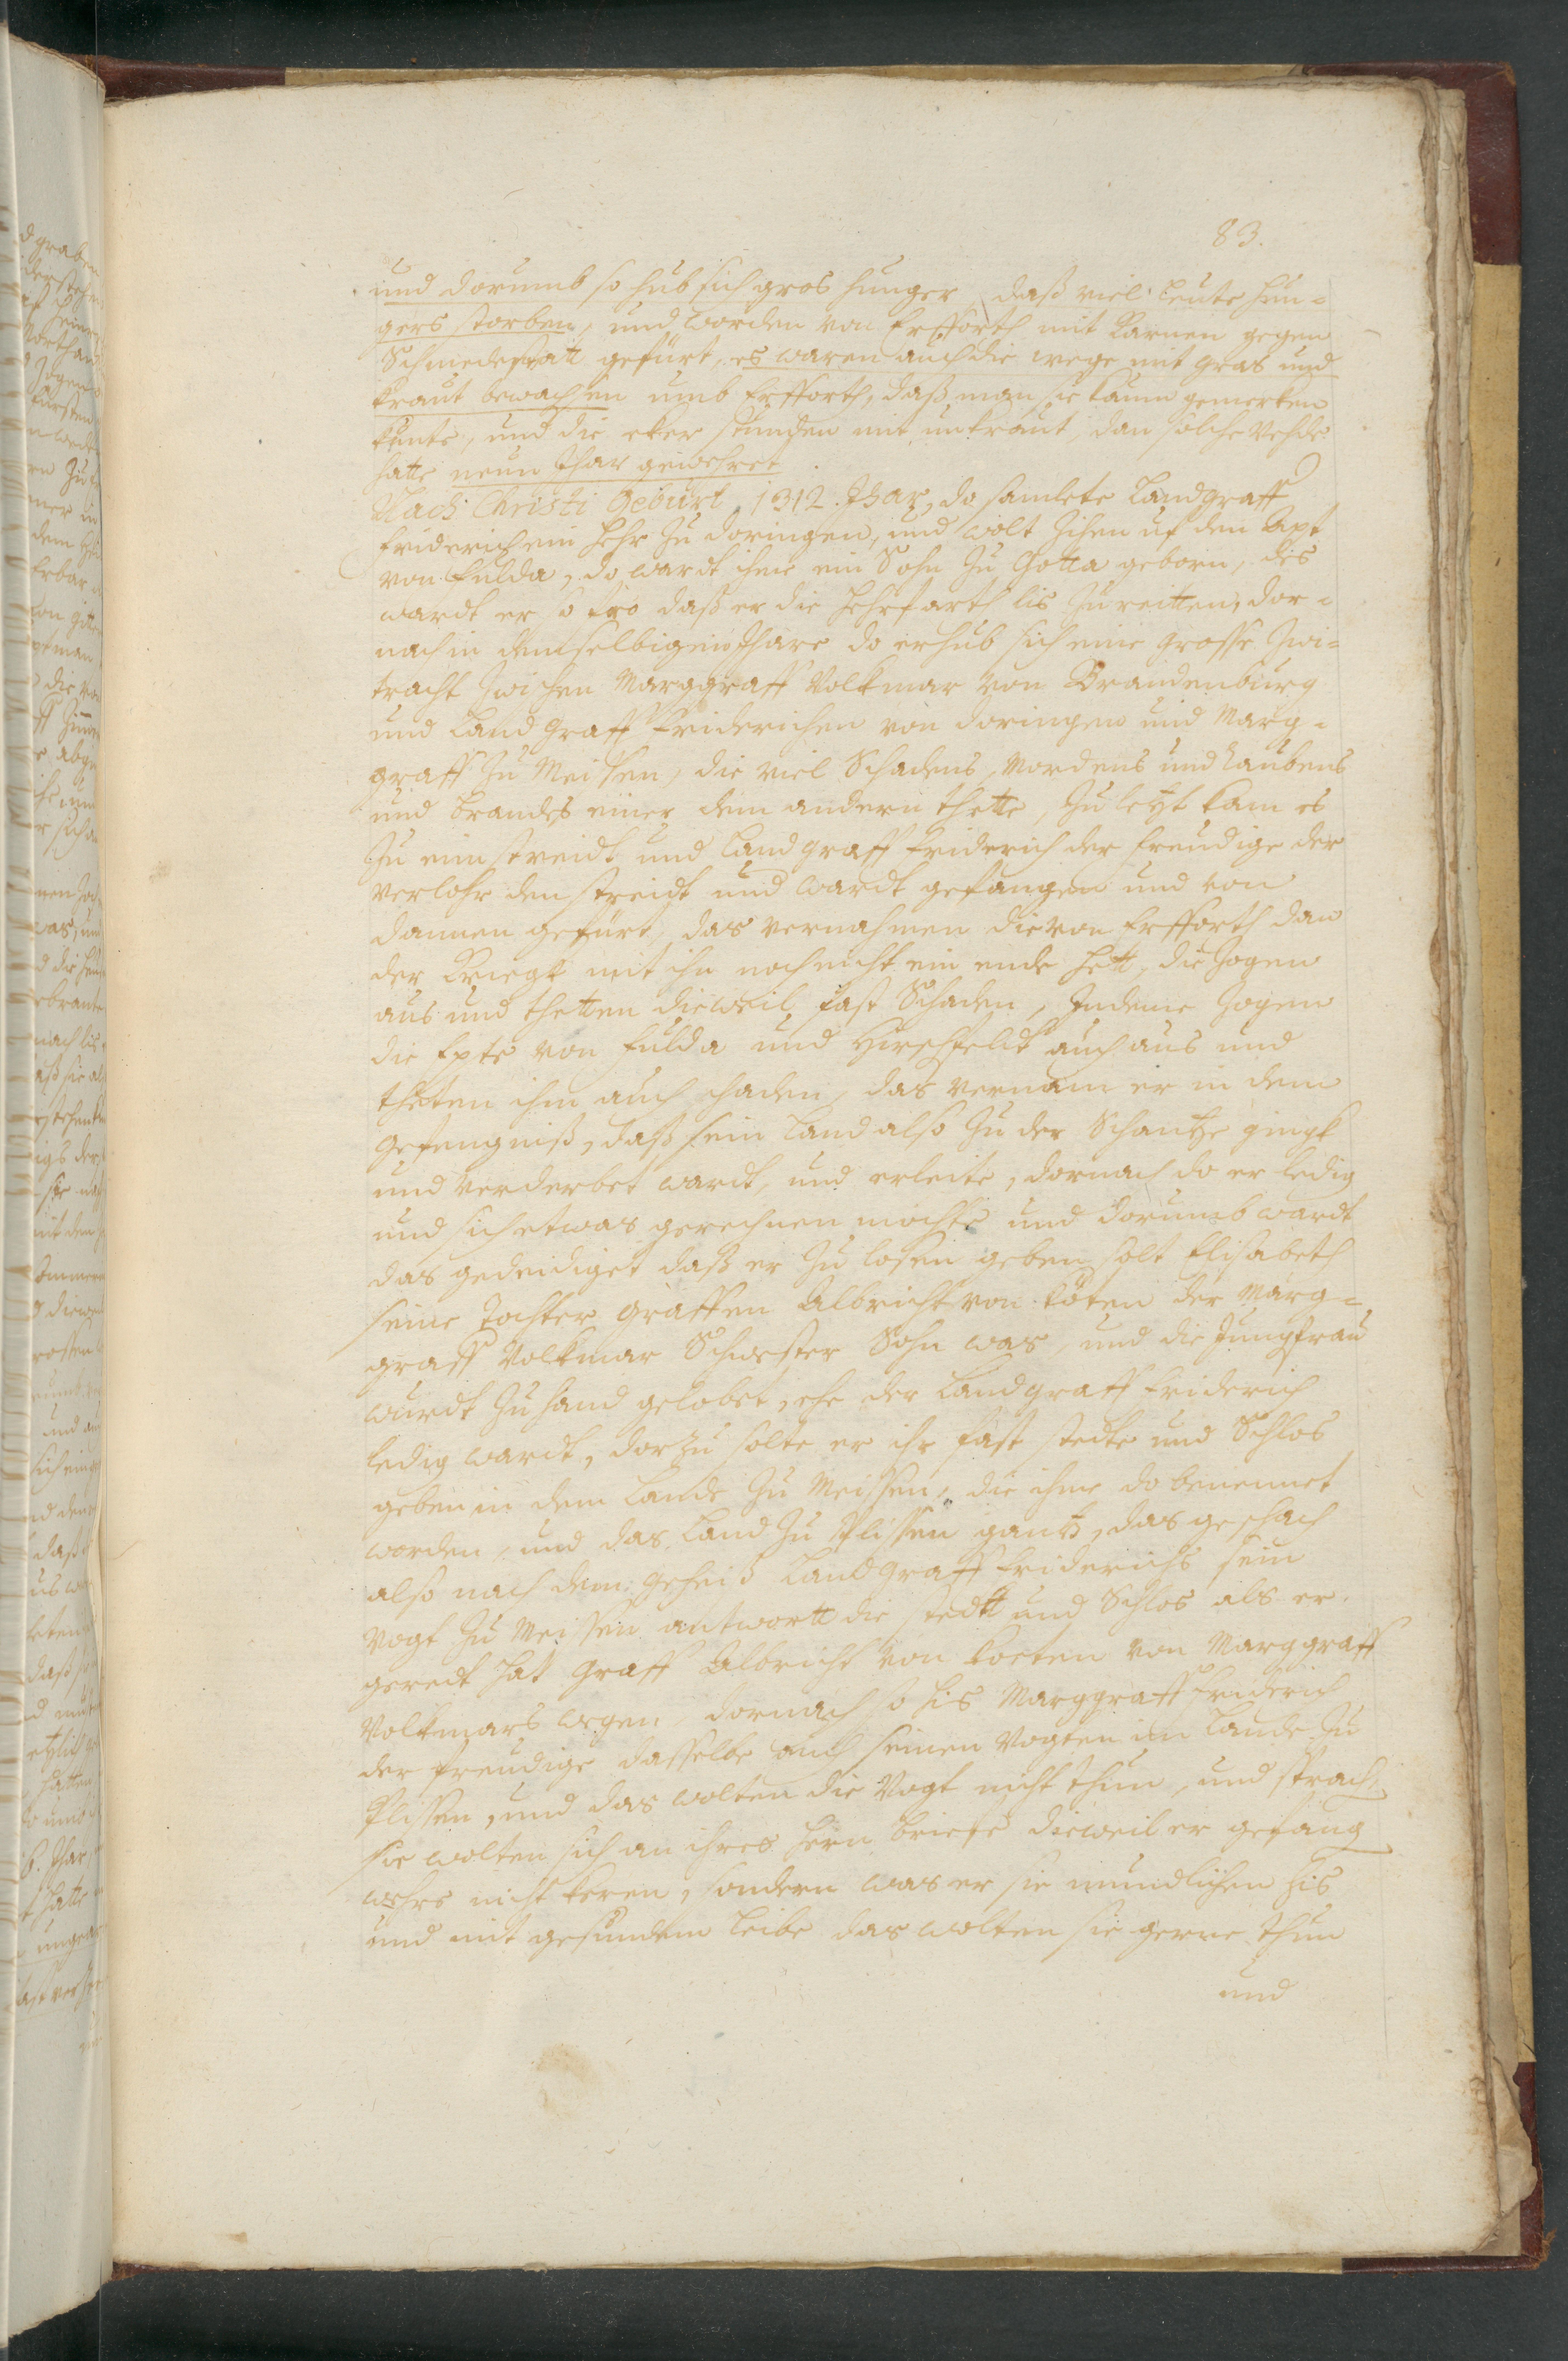 83.
und dorumb so hub sich gros hunger, daß viel leute hun=
gers storben, und worden von Erfforth mit Karnen gegen
Schmedestatt gefürt, es waren auch die wege mit gras und
kraut bewachsen umb Erfforth, daß man sie kaum gemerken
kunte, und die eker stunden mit unkraut, dan solche Vehde
hatte neun Jhar gewehret
Nach Christi Geburt 1312. Jhar, do samlete Landgraff
Friderich ein Hehr zu Doringen, und wolt zihen uf den Apt
von Fulda, do wardt ihme ein Sohn zu Gotta geborn, des
wardt er so fro daß er die Hehrfarth lis zureitten, dor=
nach in demselbigen Jhare do erhub sich eine grosse Zwi=
tracht zwischen Marggraff Volkmar von Brandenburg
und Landgraff Friderichen von Doringen und Marg=
graff zu Meissen, die viel Schadens, Mordens und Raubens
und brandes einer dem andern thette, zu letzt kam es
zu eim streidt und Landgraff Friderich der freudige der
verlohr den streidt und wardt gefangen und von
dannen gefürt, das vernahmen die von Erfforth dan
der Kriegk mit ihn noch nicht ein ende hett, die zogen
aus und thetten dieweil fast Schaden, Indeme zogen
die Epte von Fulda und Hirschfeldt auch aus und
theten ihm auch schaden, das vernam er in dem
gefengniß, daß sein Land also zu der Schantze gingk
und verderbet wardt, und erleite, dornach do er ledig
und sich etwas gerechnen mochte und dorumb wardt
das gedeidiget daß er zu losen geben solt Elisabeth
seine Tochter Graffen Albricht von Köten der Marg=
graff Volkmar Schwester Sohn was, und die Jungfrau
wurdt zu hand gelobet, ehe der Landgraff Friderich
ledig wardt, dorzu solte er ihr fast stedte und Schlos
geben in dem Lande zu Meissen, die ihme do benennet
worden, und das Land zu Plissen gantz, das geschach
also nach dem geheis Landgraff Friderichs sein
Vogt zu Meissen antwortt die stedtt und Schlos als er
geredt hat Graff Albricht von Koeten von Marggraff
Volkmars wegen, dornach so his Marggraff Friderich
der freudige dasselbe auch seinen Vogten im Lande zu
Plissen, und das wolten die Vogt nicht thun, und sprach,
sie wolten sich an ihres hern briefe dieweil er gefang
wehre nicht keren, sondern was er sie mundlichen his
und mit gesundem leibe das wolten sie gerne thun
und